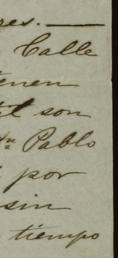 res.
Calle
ienen
son
Dn Pablo
por
sin
tiempo